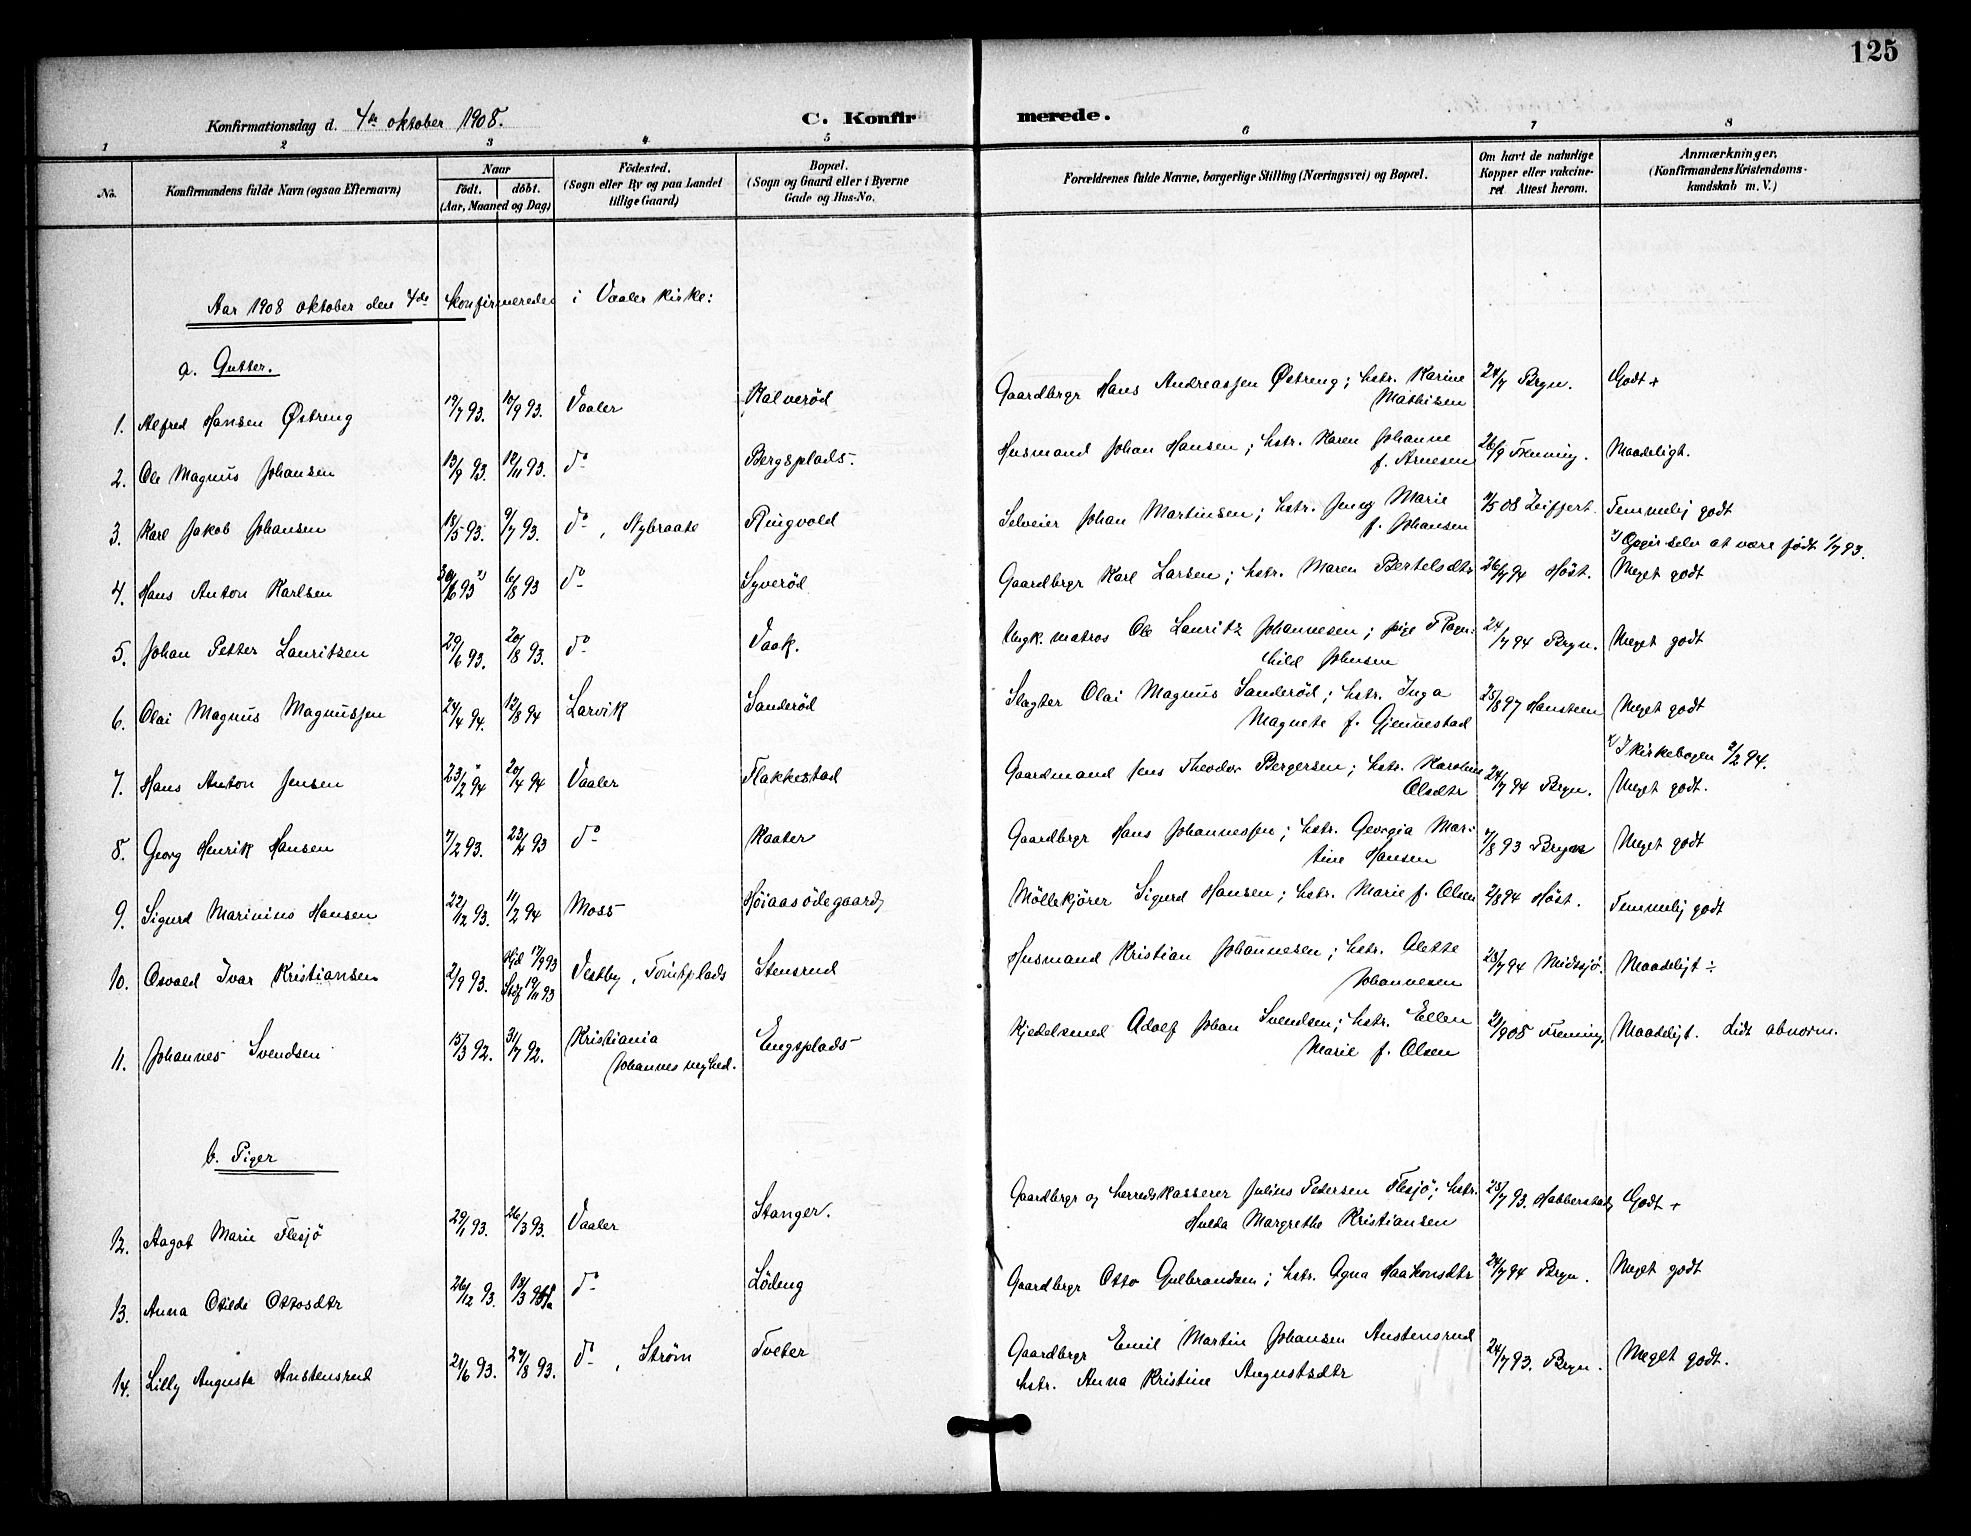 125
Konfirmationsdag d. 4de oktober 1908.
C. Konfirmerede.
1 2 3 4 5 6 7 8
No.
Konfirmandens fulde Navn (ogsaa Efternavn)
Naar
födt. döbt.
(Aar, Maaned og Dag)
Födested.
(Sogn eller By og paa Landet
tillige Gaard)
Bopæl.
(Sogn og Gaard eller i Byerne
Gade og Hus-No.
Forældrenes fulde Navne, borgerlige Stilling (Næringsvei) og Bopæl.
Om havt de naturlige
Kopper eller vakcine-
ret Attest herom.
Anmærkninger.
(Konfirmandens Kristendoms-
kundskab m. V.)
Aar 1908 oktober den 4de konfirmeredes i Vaaler kirke:
a. Gutter.
1. Alfred Hansen Østreng 19/7 93. 10/9 93. Vaaler Kalverød Gaardbrgr Hans Andreassen Østreng; hstr. Karine 24/7 Bryn. Godt +
Mathisen
2. Ole Magnus Johansen 13/9 93. 12/11 93. do Bergsplads. Husmand Johan Hansen; hstr. Karen Johanne 26/9 Frening. Maadeligt.
f. Arnesen
3. Karl Jakob Johansen 18/5 93. 9/7 93. do, Nybraate Ringvold Selveier Johan Martinsen; hstr. Jeny Marie 11/5 08 Leiffert. Temmelig godt
f. Johansen
x) Opgir selv at være født 1/7 93.
4. Hans Anton Karlsen 30/6 93 x) 6/8 93 do Syverød Gaardbrgr Karl Larsen; hstr. Maren Bertelsdtr 26/7 94 Höst. Meget godt
5. Johan Petter Lauritzen 29/6 93. 20/8 93. do Vaak. Ungk. matros Ole Lauritz Johannesen; pige Ragn- 24/7 94 Bryn. Meget godt
hild Johnsen
6. Olai Magnus Magnussen 24/4 94. 12/8 94 Larvik Sanderød Slagter Olai Magnus Sanderød; hstr. Inga 25/8 97 Hansteen Meget godt
Magnete f. Gjennestad
x) I kirkebogen 2/2 94.
7. Hans Anton Jensen 23/2 94 20/4 94 Vaaler Flakkestad Gaardmand Jens Theodor Bergersen; hstr. Karoline 24/7 94 Bryn. Meget godt.
Olsdtr
8. Georg Henrik Hansen 7/2 93. 23/4 93 do Kaater Gaardbrgr Hans Johannessen; hstr. Georgia Mar- 7/8 93 Bryn Meget godt
tine Hansen
9. Sigurd Marinius Hansen 22/12 93. 11/2 94 Moss Höiaasödegaard Möllekjörer Sigurd Hansen; hstr. Marie f. Olsen 2/8 94 Höst. Temmelig godt
10. Osvald Ivar Kristiansen 2/9 93. Hjd 17/9 93 Vestby, Stensrud Husmand Kristian Johannesen; hstr. Olette 23/7 94 Maadeligt ÷
19/11 93 Johannesen
11. Johannes Svendsen 15/3 92. 31/7 92. Kristiania Engsplads Kjedelsmed Adolf Johan Svendsen; hstr. Ellen 21/9 05 Frening, Maadeligt. Lidt abnorm.
Johannes mghed. Marie f. Olsen
b. Piger
12. Aagot Marie Flesjö 29/1 93. 26/3 93. Vaaler Stanger. Gaardbrgr og herredskasserer Julius Petersen Flesjö; hstr. 25/7 93. Habberstad, Godt +
Hulda Margrethe Kristiansen
13. Anna Otilde Ottosdtr 26/12 93. 18/3 94 do Lödeng Gaardbrgr Otto Gulbrandsen; hstr. Agna Haakonsdtr 24/7 94 Bryn. Meget godt
14. Lilly Augusta Austensrud 21/6 93. 27/8 93. do, Ström Tveter Gaardbrgr Emil Martin Johansen Austensrud 24/7 93. Bryn. Meget godt.
hstr. Anna Kristine Augustsdtr